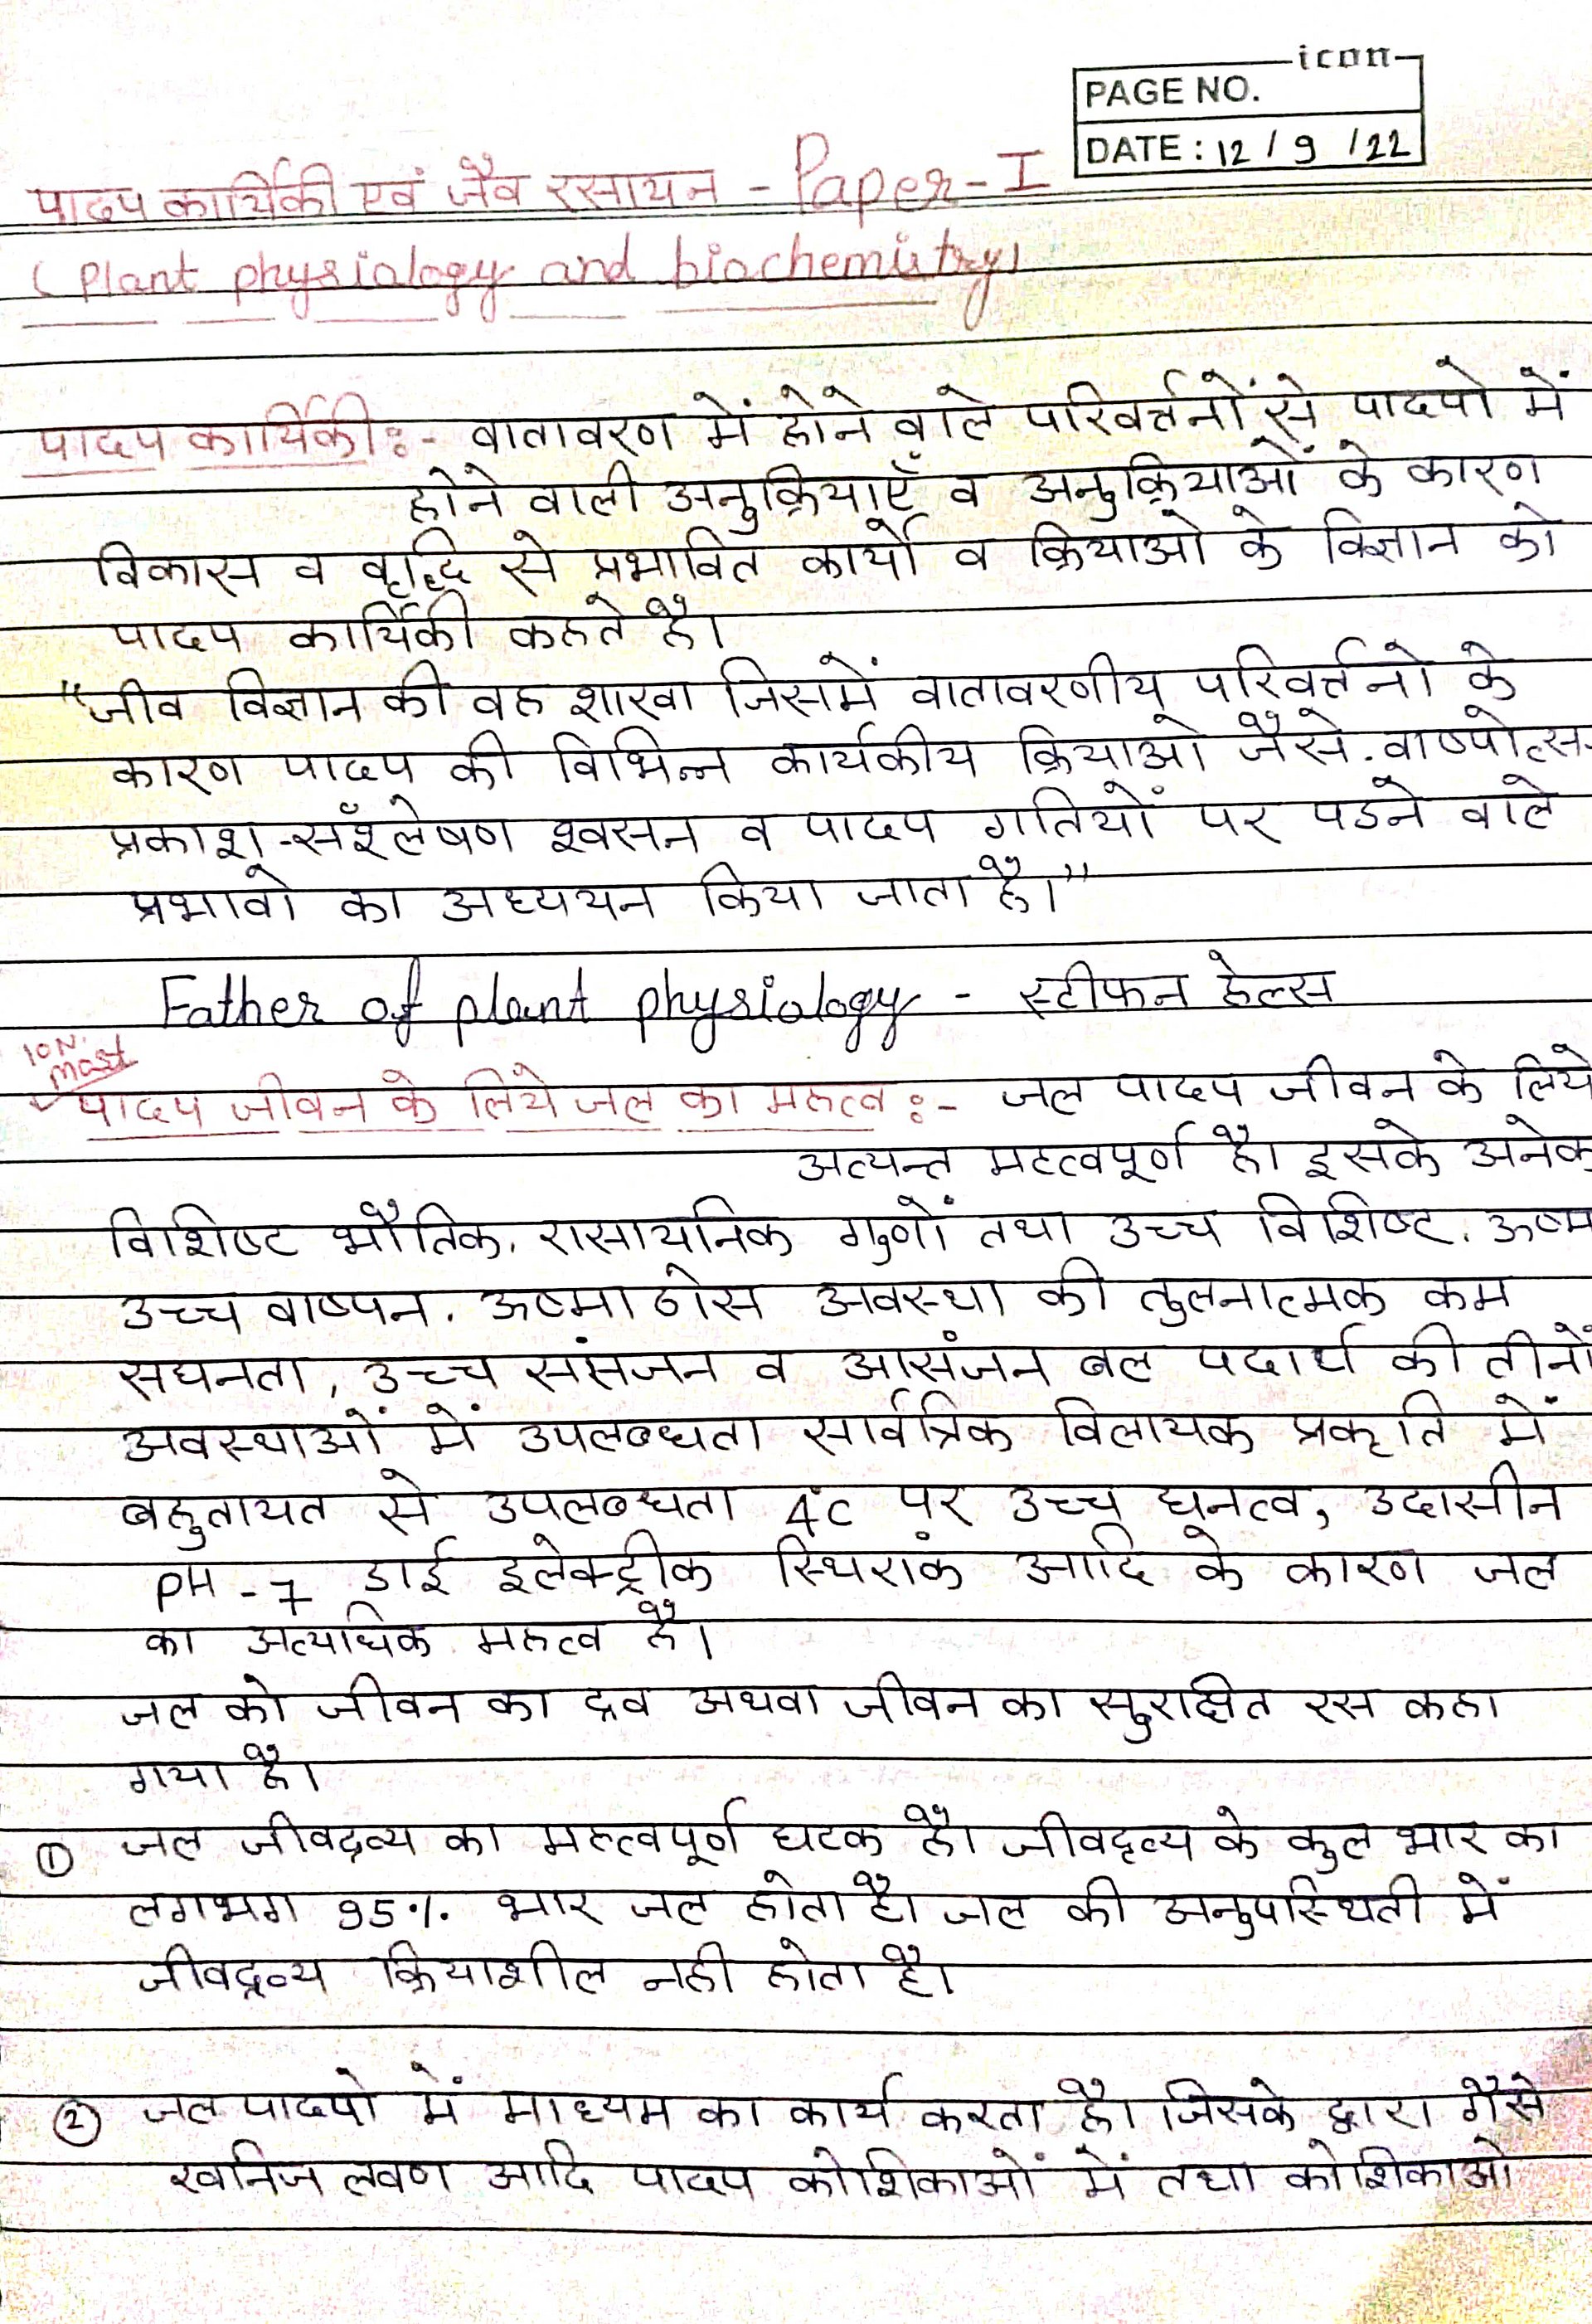 icon
PAGE NO.
DATE : 12 / 9 / 22
पादप कार्यिकी एवं जैव रसायन - Paper - I
( Plant physiology and biochemistry)
पादप कार्यिकी :- वातावरण में होने वाले परिवर्त्तनों से पादपो में
होने वाली अनुक्रियाएँ व अनुक्रियाओं के कारण
विकास व वृद्धि से प्रभावित कार्यो व क्रियाओ के विज्ञान को
पादप कार्यिकी कहते है।
"जीव विज्ञान की वह शाखा जिसमें वातावरणीय परिवर्त्तनो के
कारण पादप की विभिन्न कार्यकीय क्रियाओ जैसे. वाष्पोत्स-
प्रकाश-सँश्लेषण श्वसन व पादप गतियों पर पडने वाले
प्रभावो का अध्ययन किया जाता है।"
Father of plant physiology - स्टीफन हेल्स
10 N.
Most
पादप जीवन के लिये जल का महत्व :- जल पादप जीवन के लिये
अत्यन्त महत्वपूर्ण है। इसके अनेक
विशिष्ट भौतिक, रासायनिक गुणों तथा उच्च विशिष्ट. ऊष्मा
उच्च वाष्पन. ऊष्मा ठोस अवस्था की तुलनात्मक कम
सघनता, उच्च संसंजन व आसंजन बल पदार्थ की तीनों
अवस्थाओं में उपलब्धता सार्वत्रिक विलायक प्रकृति में
बहुतायत से उपलब्धता 4°c पर उच्च घनत्व, उदासीन
PH - 7 डाई इलेक्ट्रीक स्थिरांक आदि के कारण जल
का अत्याधिक महत्व है।
जल को जीवन का द्रव अथवा जीवन का सुरक्षित रस कहा
गया है।
① जल जीवद्रव्य का महत्वपूर्ण घटक है। जीवद्रव्य के कुल भार का
लगभग 95% भार जल होता है। जल की अनुपस्थिती में
जीवद्रव्य क्रियाशील नही होता है।
② जल पादपो में माध्यम का कार्य करता है। जिसके द्वारा गैसे
खनिज लवण आदि पादप कोशिकाओं में तथा कोशिकाओ